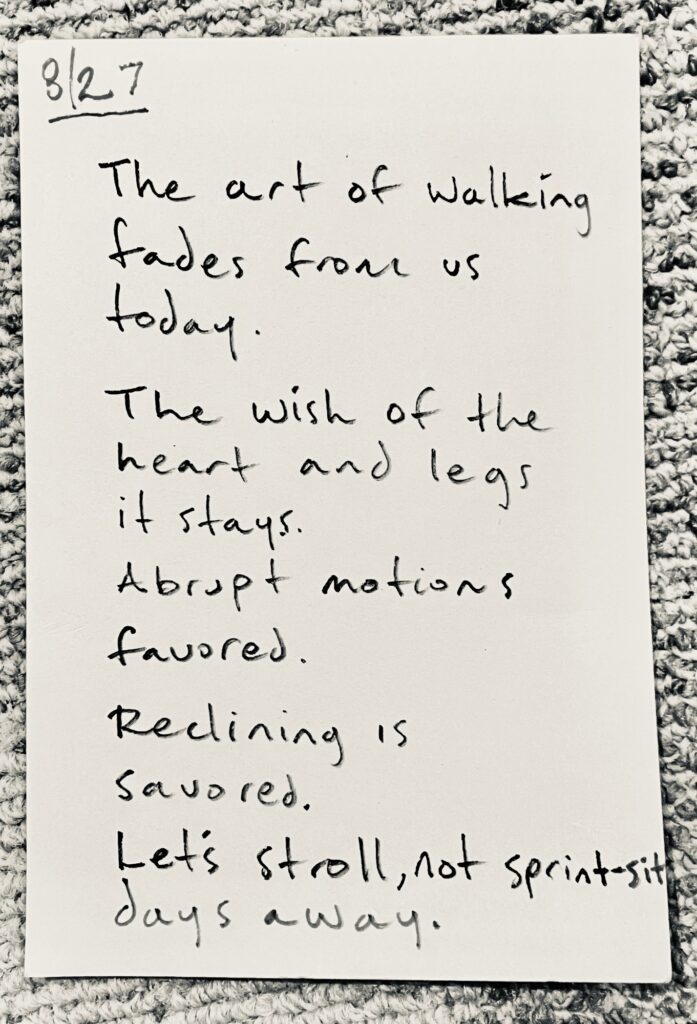 8/27
The art of walking
fades from us
today.
The wish of the
heart and legs
it stays.
Abrupt motions
favored.
Reclining is
savored.
Let's stroll, not sprint-sit
days away.